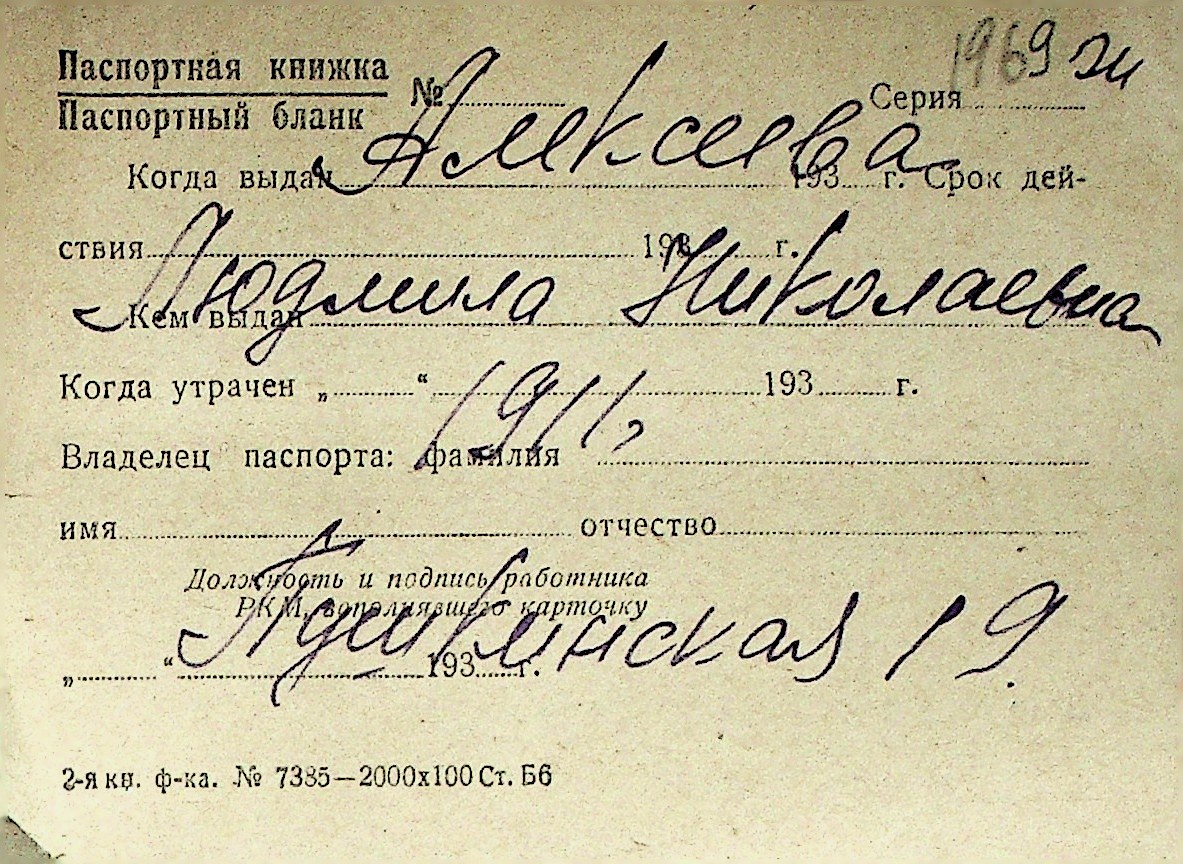 1969
Паспортная книжка
Паспортный бланк
№ Серия
Алексеева
Когда выдан „ 193 г. Срок дей-
ствия 193 г.
Людмила Николаевна
Кем выдан
Когда утрачен „ “ 193 г.
1911,
Владелец паспорта: фамилия
имя отчество
Должность и подпись работника
РКМ, заполнявшего карточку
Пушкинская 19.
„ “ 193 г.
2-я кн. ф-ка. № 7385—2000х100 Ст. Б6